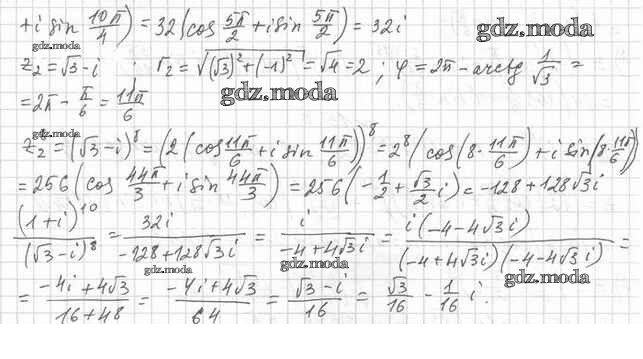 + i sin 10π/4) = 32(cos 5π/2 + i sin 5π/2) = 32i
gdz.moda
gdz.moda
z₂ = √3 - i ; r₂ = √((√3)² + (-1)²) = √4 = 2 ; φ = 2π - arctg 1/√3 =
= 2π - π/6 = 11π/6
gdz.moda
gdz.moda
z₂ = (√3 - i)⁸ = (2(cos 11π/6 + i sin 11π/6))⁸ = 2⁸(cos(8·11π/6) + i sin(8·11π/6))
= 256(cos 44π/3 + i sin 44π/3) = 256(-1/2 + √3/2 i) = -128 + 128√3i
(1+i)¹⁰/(√3-i)⁸ = 32i/(-128+128√3i) = i/(-4+4√3i) = i(-4-4√3i)/((-4+4√3i)(-4-4√3i)) =
gdz.moda
gdz.moda
gdz.moda
= (-4i+4√3)/(16+48) = (-4i+4√3)/64 = (√3-i)/16 = √3/16 - 1/16 i.